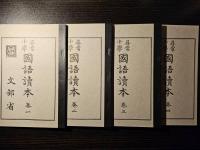 尋常
小學
國語讀本 卷一
文部省
尋常
小學
國語讀本 卷二
尋常
小學
國語讀本 卷三
尋常
小學
國語讀本